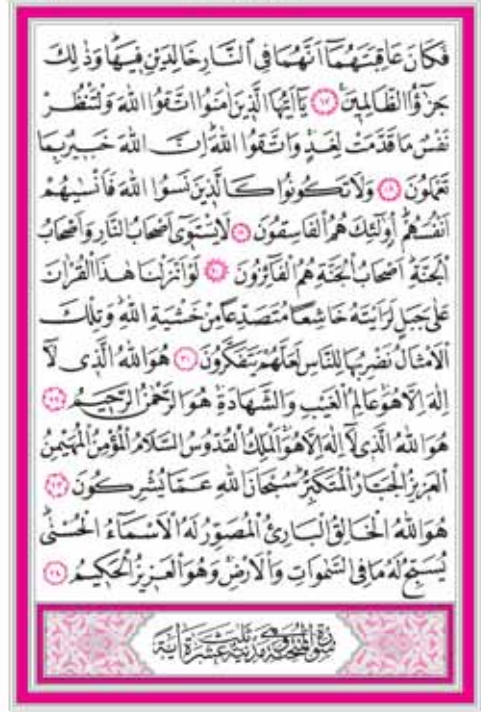 فَكَانَ عَاقِبَتَهُمَٓا اَنَّهُمَا فِي النَّارِ خَالِدَيْنِ فٖيهَاۜ وَذٰلِكَ
جَزٰٓؤُا الظَّالِمٖينَ ﴿١٧﴾ يَٓا اَيُّهَا الَّذٖينَ اٰمَنُوا اتَّقُوا اللّٰهَ وَلْتَنْظُرْ
نَفْسٌ مَا قَدَّمَتْ لِغَدٍۚ وَاتَّقُوا اللّٰهَۜ اِنَّ اللّٰهَ خَبٖيرٌ بِمَا
تَعْمَلُونَ ﴿١٨﴾ وَلَا تَكُونُوا كَالَّذٖينَ نَسُوا اللّٰهَ فَاَنْسٰيهُمْ
اَنْفُسَهُمْۜ اُو۬لٰٓئِكَ هُمُ الْفَاسِقُونَ ﴿١٩﴾ لَا يَسْتَوٖٓي اَصْحَابُ النَّارِ وَاَصْحَابُ
الْجَنَّةِۜ اَصْحَابُ الْجَنَّةِ هُمُ الْفَٓائِزُونَ ﴿٢٠﴾ لَوْ اَنْزَلْنَا هٰذَا الْقُرْاٰنَ
عَلٰى جَبَلٍ لَرَاَيْتَهُ خَاشِعًا مُتَصَدِّعًا مِنْ خَشْيَةِ اللّٰهِۜ وَتِلْكَ
الْاَمْثَالُ نَضْرِبُهَا لِلنَّاسِ لَعَلَّهُمْ يَتَفَكَّرُونَ ﴿٢١﴾ هُوَ اللّٰهُ الَّذٖي لَٓا
اِلٰهَ اِلَّا هُوَۚ عَالِمُ الْغَيْبِ وَالشَّهَادَةِۚ هُوَ الرَّحْمٰنُ الرَّحٖيمُ ﴿٢٢﴾
هُوَ اللّٰهُ الَّذٖي لَٓا اِلٰهَ اِلَّا هُوَۚ اَلْمَلِكُ الْقُدُّوسُ السَّلَامُ الْمُؤْمِنُ الْمُهَيْمِنُ
الْعَزٖيزُ الْجَبَّارُ الْمُتَكَبِّرُۜ سُبْحَانَ اللّٰهِ عَمَّا يُشْرِكُونَ ﴿٢٣﴾
هُوَ اللّٰهُ الْخَالِقُ الْبَارِئُ الْمُصَوِّرُ لَهُ الْاَسْمَٓاءُ الْحُسْنٰىۜ
يُسَبِّحُ لَهُ مَا فِي السَّمٰوَاتِ وَالْاَرْضِۚ وَهُوَ الْعَزٖيزُ الْحَكٖيمُ ﴿٢٤﴾
سُورَةُ الْمُمْتَحِنَةِ مَدَنِيَّةٌ وَهِيَ ثَلٰثَ عَشْرَةَ اٰيَةً